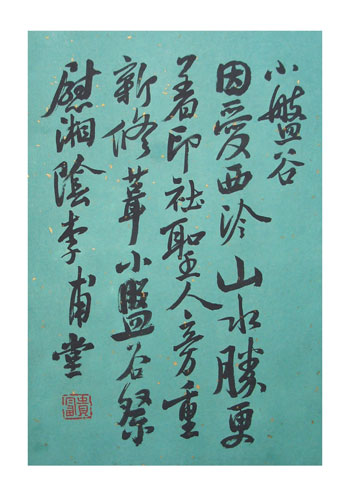 小盤谷
因愛西泠山水勝更
着印社聖人旁重
新修葺小盤谷祭
慰湘陰李甫堂